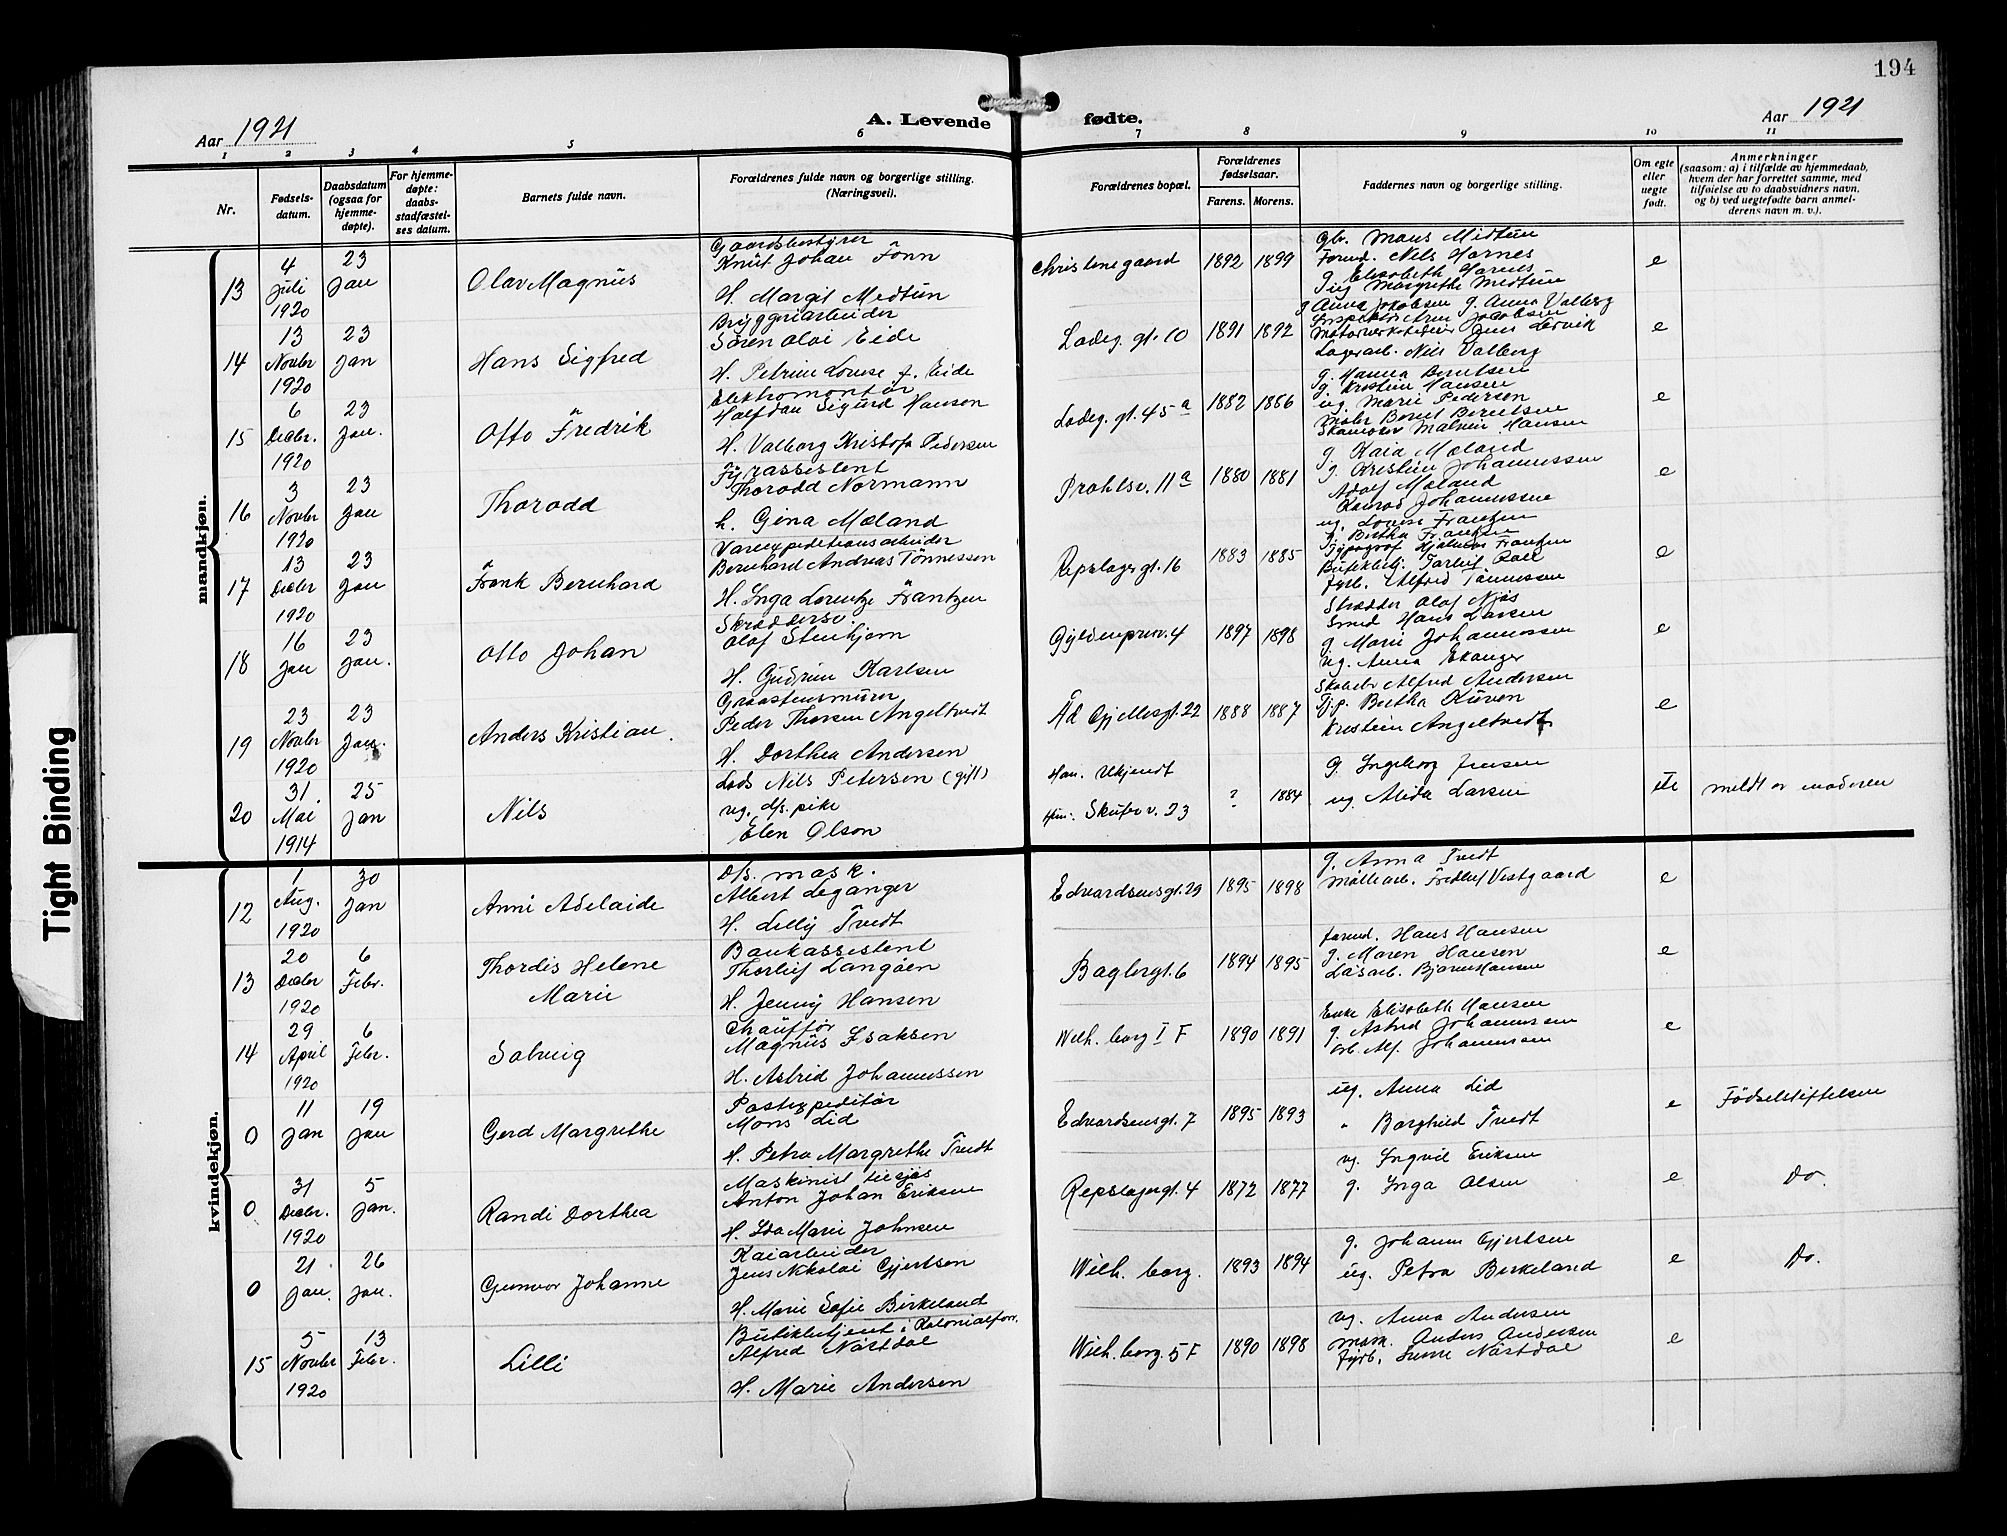 194
Aar 1921
A. Levende fødte.
Aar 1921
1 2 3 4 5 6 7 8 9 10 11
Nr.
Fødsels-
datum.
Daabsdatum
(ogsaa for
hjemme-
døpte).
For hjemme-
døpte:
daabs-
stadfæstel-
ses datum.
Barnets fulde navn.
Forældrenes fulde navn og borgerlige stilling.
(Næringsvei).
Forældrenes bopæl.
Forældrenes
fødselsaar.
Farens. Morens.
Faddernes navn og borgerlige stilling.
Om egte
eller
uegte
født.
Anmerkninger
(saasom: a) i tilfælde av hjemmedaab,
hvem der har forrettet samme, med
tilføielse av to daabsvidners navn,
og b) ved uegtefødte barn anmel-
derens navn m. v.).
mandkjøn.
13
4
Juli
1920
23
Jan
Olav Magnus
Gaardsbestyrer
Knut Johan Fönn
H. Margit Medtun
Christinegaard
1892 1899
gbr. Mons Midtun
Forend. Nils Hornes
g. Elisabeth Hornes
ug Margrethe Medtun
e
14
13
Novbr
1920
23
Jan
Hans Sigfred
Bryggeriarbeider
Sören Olai Eide
H. Petrine Lovise f. Eide
Ladeg. gt. 10
1891 1892
g Anna Jakobsen g. Anna Valberg
Inspektör Arne Jacobsen
Motorverkstedeier Jens Lervik
Lagerarb. Nils Valberg
e
15
6
Decbr.
1920
23
Jan.
Otto Fredrik
Elektromontör
Halfdan Sigurd Hansen
H. Valborg Kristofa Pedersen
Ladeg. gt. 45 a
1882 1886
g. Hanna Berntsen
g. Kristine Hansen
ug. Marie Pedersen
Maler Bernt Berntsen
Skomaker Malvin Hansen
e
16
3
Novbr
1920
23
Jan
Thorodd
Fyrassistent
Thorodd Normann
h. Gina Mæland
Prahlsv. 11 a
1880 1881
g. Kaia Mæland
g. Kristine Johannessen
Adolf Mæland
Konrad Johannessen
e
17
13
Decbr
1920
23
Jan
Frank Bernhard
Vareexpeditionsarbeider
Bernhard Andreas Tönnessen
H. Inga Lorentze Frantzen
Repslager gt. 16
1883 1885
ug. Lovise Frantzen
g. Bertha Frantzen
Typograf Hjalmar Frantzen
Fyrb. Alfred Tönnessen
e
18
16
Jan
23
Jan.
Otto Johan
Skräddersv.
Olaf Stenhjem
H. Gudrun Karlsen
Gyldenprisv. 4
1897 1898
Skrædder Olaf Njös
Smed Hans Larsen
g. Marie Johannessen
ug. Anna Ekanger
e
19
23
Novbr
1920
23
Jan.
Anders Kristian.
Graastensmurer
Peder Thorsen Angeltvedt
H. Dorthea Andersen
Ad Gjellesgt. 22
1888 1887
Skobelv Alfred Andersen
Tj.p. Bertha Kürven
Kristine Angeltvedt
e
20
31
Mai
1914
25
Jan
Nils
Lods Nils Petersen (gift)
ug. d/s. pike
Elen Olson
Han. Ukjendt
Hun: Skutev. v. 23
? 1884
g. Ingeborg Jensen
ug. Alida Larsen
ue
meldt av moderen
kvindekjøn.
12
1
Aug.
1920
30
Jan
Anni Adelaide
D/s. mask.
Albert Leganger
H. Lilly Tvedt
Edvardsensgt. 29
1895 1898
g. Anna Tvedt
Möllearb. Fredlef Vestgaard
e
13
20
Decbr
1920
6
Febr.
Thordis Helene
Marie
Bankassistent
Thorleif Langöen
H. Jenny Hansen
Baglergt. 6
1894 1895
forend. Hans Hansen
g. Maren Hansen
Lasarb. Bjarne Hansen
e
14
29
April
1920
6
Febr.
Solveig
Chauffør
Magnus Isaksen
H. Astrid Johannessen
Wilh. borg I F
1890 1891
Enke Elisabeth Hansen
g. Astrid Johannessen
arb. Alf. Johannessen
e
0
11
Jan
19
Jan
Gerd Margrethe
Postexpeditør
Mons Lid
H. Petra Margrethe Tvedt
Edvardsensgt. 7
1895 1893
ug. Anna Lid
" Borghild Tvedt
e
Födselstiftelsen
0
31
Decbr.
1920
5
Jan.
Randi Dorthea
Maskinist tilsjøs
Anton Johan Eriksen
H. Ida Marie Johnsen
Repslagergt. 4
1872 1877
ug. Ingvil Eriksen
g. Inga Olsen
e
Do.
0
21
Jan.
26
Jan.
Gunvor Johanne
Kaiarbeider
Jens Nikolai Gjertsen
H. Marie Sofie Birkeland
Wilh. borg.
1893 1894
g. Johanne Gjertsen
ug. Petra Birkeland
e
Do.
15
5
Novbr
1920
13
Febr.
Lilli
Butikbetjent i Kolonialforr.
Alfred Nästdal
H. Marie Andersen
Wilh. borg. 5 F
1890 1898
ug. Anna Andersen
mask. Anders Andersen
fyrb. Sune Nästdal
e
Tight Binding